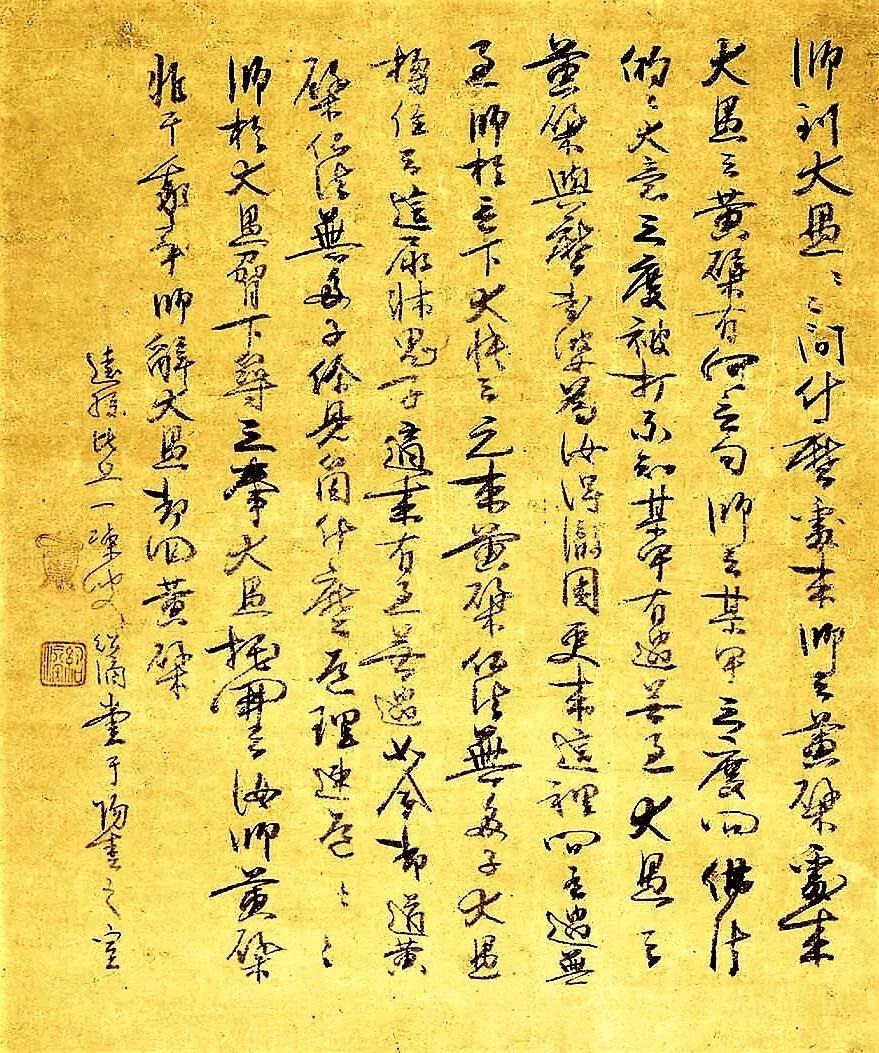 師到大愚〻〻問什麼處来師云黄檗處来
大愚云黄檗有何言句師云某甲三度問佛法
的〻大意三度被打不知某甲有過無過大愚云
黄檗與麼老婆為汝得徹困更来這裡問有過無
過師於言下大悟云元来黄檗仏法無多子大愚
搊住云這尿牀鬼子適来有過無過如今却道黄
檗仏法無多子你見箇什麼道理速道〻〻
師於大愚脅下築三拳大愚托開云汝師黄檗
非干我事師辞大愚却回黄檗
遠孫比丘一